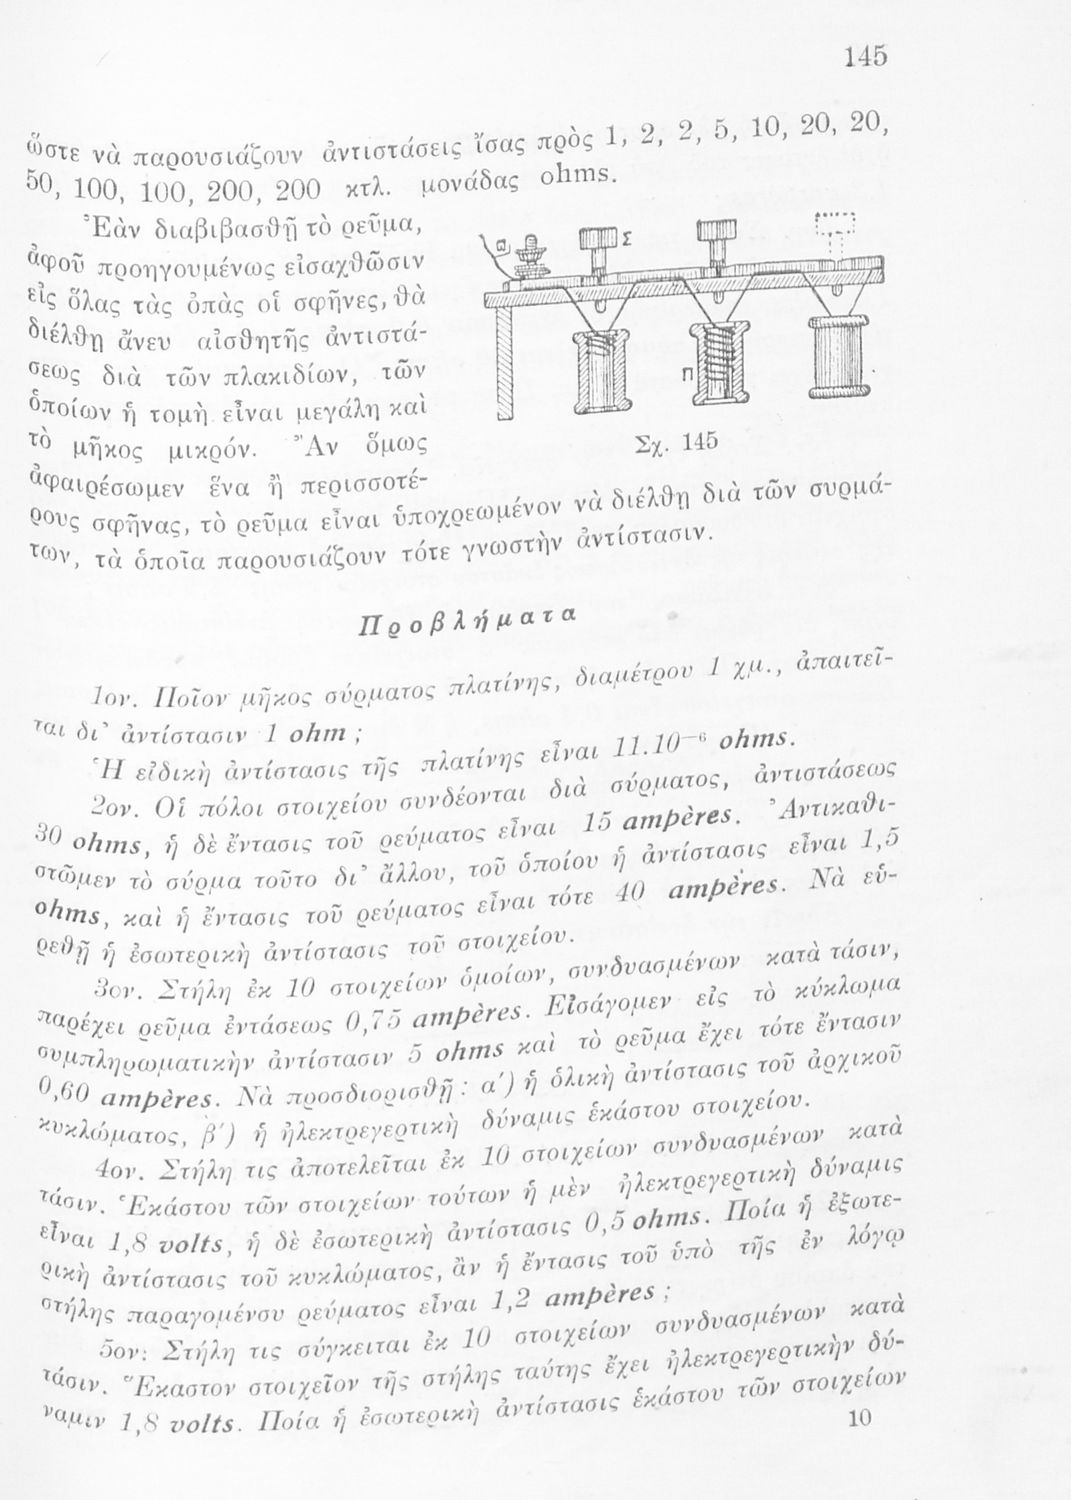 145
ὥστε νὰ παρουσιάζουν ἀντιστάσεις ἴσας πρὸς 1, 2, 2, 5, 10, 20, 20,
50, 100, 100, 200, 200 κτλ. μονάδας ohms.
Ἐὰν διαβιβασθῇ τὸ ρεῦμα,
ἀφοῦ προηγουμένως εἰσαχθῶσιν
εἰς ὅλας τὰς ὀπὰς οἱ σφῆνες, θὰ
διέλθῃ ἄνευ αἰσθητῆς ἀντιστά-
σεως διὰ τῶν πλακιδίων, τῶν
ὁποίων ἡ τομὴ εἶναι μεγάλη καὶ
τὸ μῆκος μικρόν. Ἂν ὅμως
ἀφαιρέσωμεν ἕνα ἢ περισσοτέ-
ρους σφῆνας, τὸ ρεῦμα εἶναι ὑποχρεωμένον νὰ διέλθῃ διὰ τῶν συρμά-
των, τὰ ὁποῖα παρουσιάζουν τότε γνωστὴν ἀντίστασιν.
Σ
Π
Σχ. 145
Προβλήματα
1ον. Ποῖον μῆκος σύρματος πλατίνης, διαμέτρου 1 χμ., ἀπαιτεῖ-
ται δι' ἀντίστασιν 1 ohm ;
Ἡ εἰδικὴ ἀντίστασις τῆς πλατίνης εἶναι 11.10⁻⁶ ohms.
2ον. Οἱ πόλοι στοιχείου συνδέονται διὰ σύρματος, ἀντιστάσεως
30 ohms, ἡ δὲ ἔντασις τοῦ ρεύματος εἶναι 15 ampères. Ἀντικαθι-
στῶμεν τὸ σύρμα τοῦτο δι' ἄλλου, τοῦ ὁποίου ἡ ἀντίστασις εἶναι 1,5
ohms, καὶ ἡ ἔντασις τοῦ ρεύματος εἶναι τότε 40 ampères. Νὰ εὑ-
ρεθῇ ἡ ἐσωτερικὴ ἀντίστασις τοῦ στοιχείου.
3ον. Στήλη ἐκ 10 στοιχείων ὁμοίων, συνδυασμένων κατὰ τάσιν,
παρέχει ρεῦμα ἐντάσεως 0,75 ampères. Εἰσάγομεν εἰς τὸ κύκλωμα
συμπληρωματικὴν ἀντίστασιν 5 ohms καὶ τὸ ρεῦμα ἔχει τότε ἔντασιν
0,60 ampères. Νὰ προσδιορισθῇ : α') ἡ ὁλικὴ ἀντίστασις τοῦ ἀρχικοῦ
κυκλώματος, β') ἡ ἠλεκτρεγερτικὴ δύναμις ἑκάστου στοιχείου.
4ον. Στήλη τις ἀποτελεῖται ἐκ 10 στοιχείων συνδυασμένων κατὰ
τάσιν. Ἑκάστου τῶν στοιχείων τούτων ἡ μὲν ἠλεκτρεγερτικὴ δύναμις
εἶναι 1,8 volts, ἡ δὲ ἐσωτερικὴ ἀντίστασις 0,5 ohms. Ποία ἡ ἐξωτε-
ρικὴ ἀντίστασις τοῦ κυκλώματος, ἂν ἡ ἔντασις τοῦ ὑπὸ τῆς ἐν λόγῳ
στήλης παραγομένου ρεύματος εἶναι 1,2 ampères ;
5ον: Στήλη τις σύγκειται ἐκ 10 στοιχείων συνδυασμένων κατὰ
τάσιν. Ἕκαστον στοιχεῖον τῆς στήλης ταύτης ἔχει ἠλεκτρεγερτικὴν δύ-
ναμιν 1,8 volts. Ποία ἡ ἐσωτερικὴ ἀντίστασις ἑκάστου τῶν στοιχείων
10